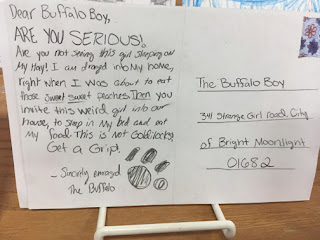 Dear Buffalo Boy,
ARE YOU SERIOUS!
Are you not seeing this girl sleeping on
My Hay! I am dragged into My home,
right when I was about to eat
those sweet sweet peaches. Then you
invite this weird girl into our
house, to sleep in My bed and eat
My food. This is not Goldilocks,
Get a Grip!
- Sincirly enraged
The Buffalo
The Buffalo Boy
341 Strange Girl Road, City
of Bright Moonlight
01682